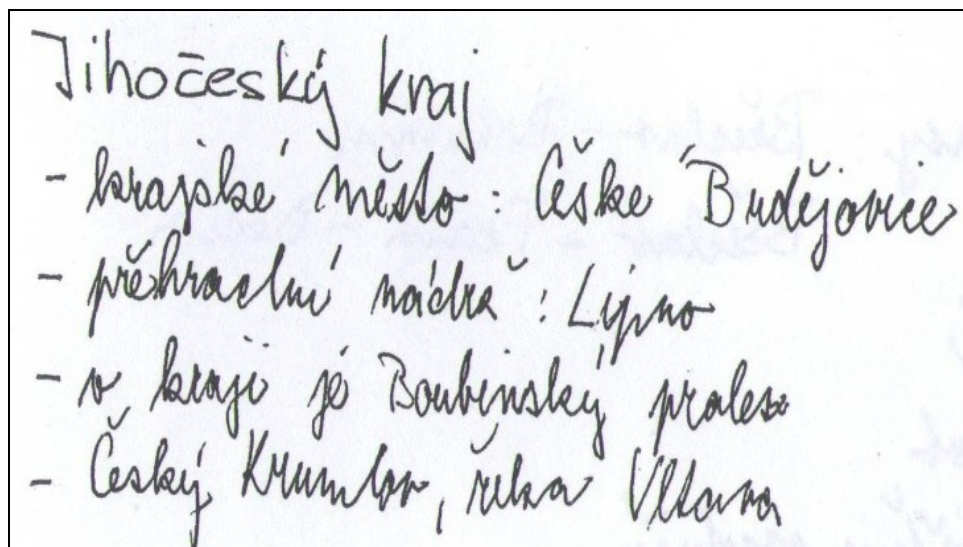 Jihočeský kraj
- krajské město : České Budějovice
- přehradní nádrž : Lipno
- v kraji je Boubínský prales
- Český Krumlov, řeka Vltava